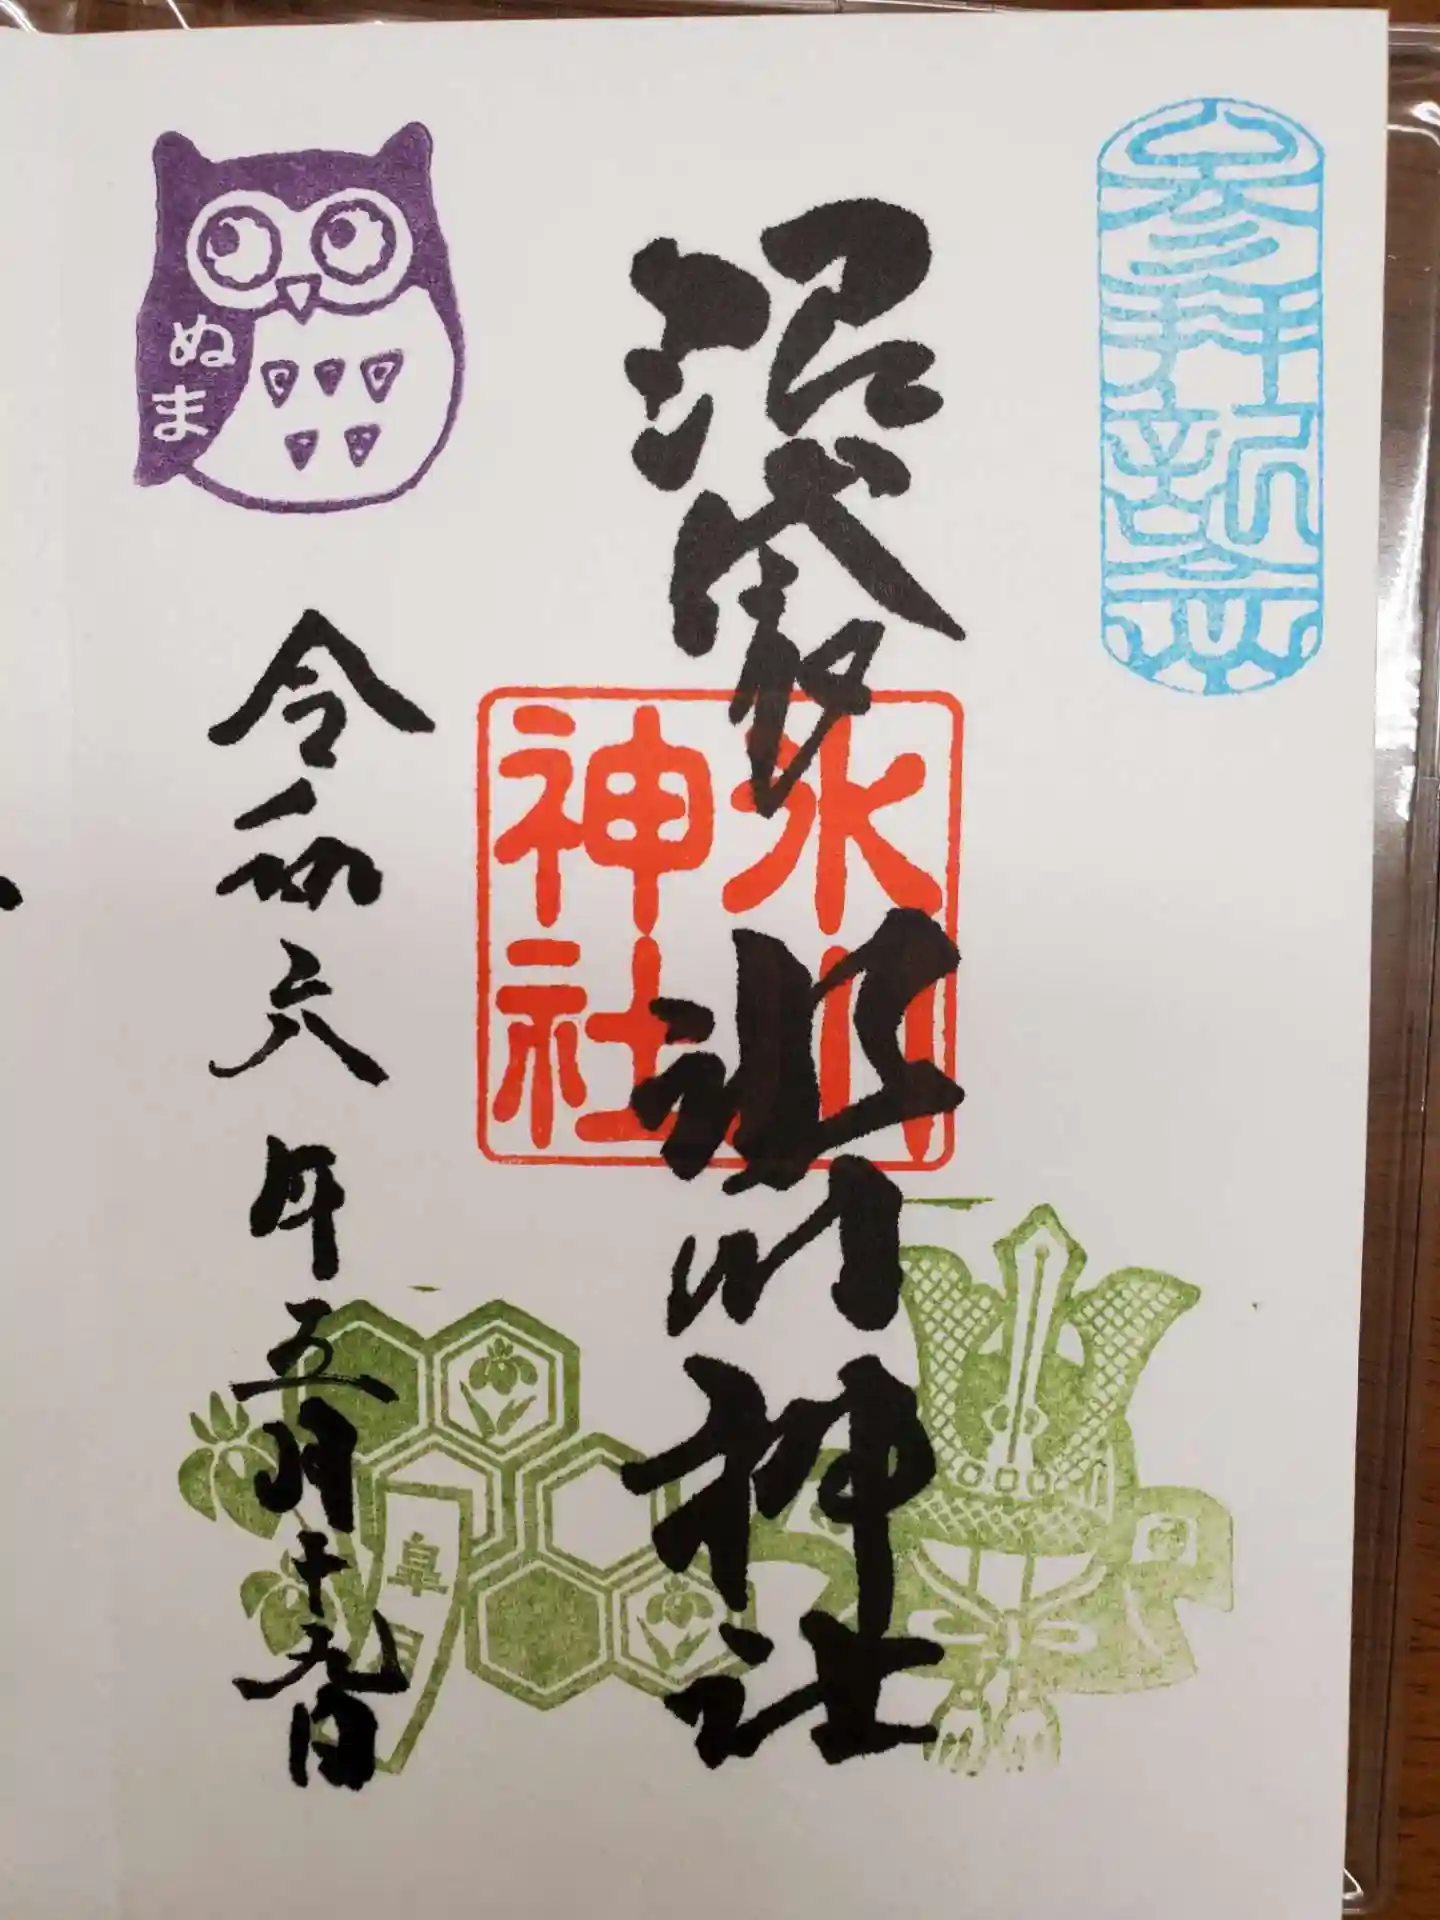 参拝祈念
沼袋
氷川神社
氷川
神社
ぬま
令和六年五月十九日
皐月